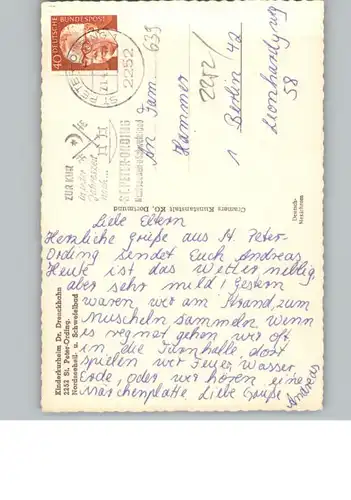 40 DEUTSCHE BUNDESPOST
ST. PETER-ORDING
2252
ZUR KUR
zu jeder
Jahreszeit
nach...
ST. PETER-ORDING
Nordseeheil- u. Schwefelbad
639
2252/
An Fam.
Hammer
1 Berlin 42
58
Cramers Kunstanstalt KG, Dortmund
Kinderkurheim Dr. Drenckhahn
2252 St. Peter-Ording.
Nordseeheil- u. Schwefelbad
Liebe Eltern
Herzliche grüße aus St. Peter-
Ording sendet Euch Andreas
Heute ist das Wetter neblig
aber sehr mild! Gestern
waren wir am Strand, zum
muscheln sammeln. Wenn
es regnat gehen wir oft
in die Turnhalle, dort
spielen wir Feuer, Wasser
Erde, oder wir hören eine
Märchenplatte. Liebe Grüße
Andreas